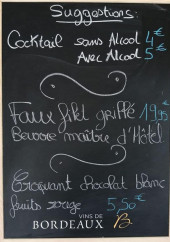 Suggestions:
Cocktail sans Alcool 4€
Avec Alcool 5€
Faux filet grillé 19,95
Beurre maître d'Hôtel
Croquant chocolat blanc
fruits rouge 5,50€
VINS DE
BORDEAUX B